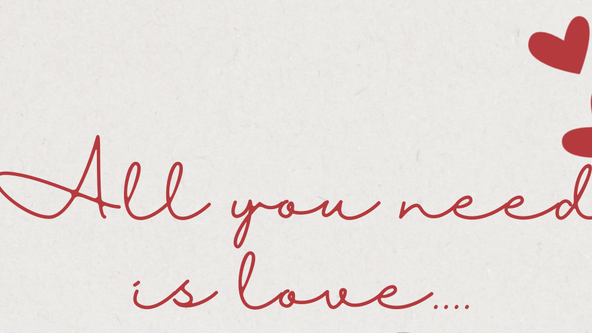 All you need
is love....